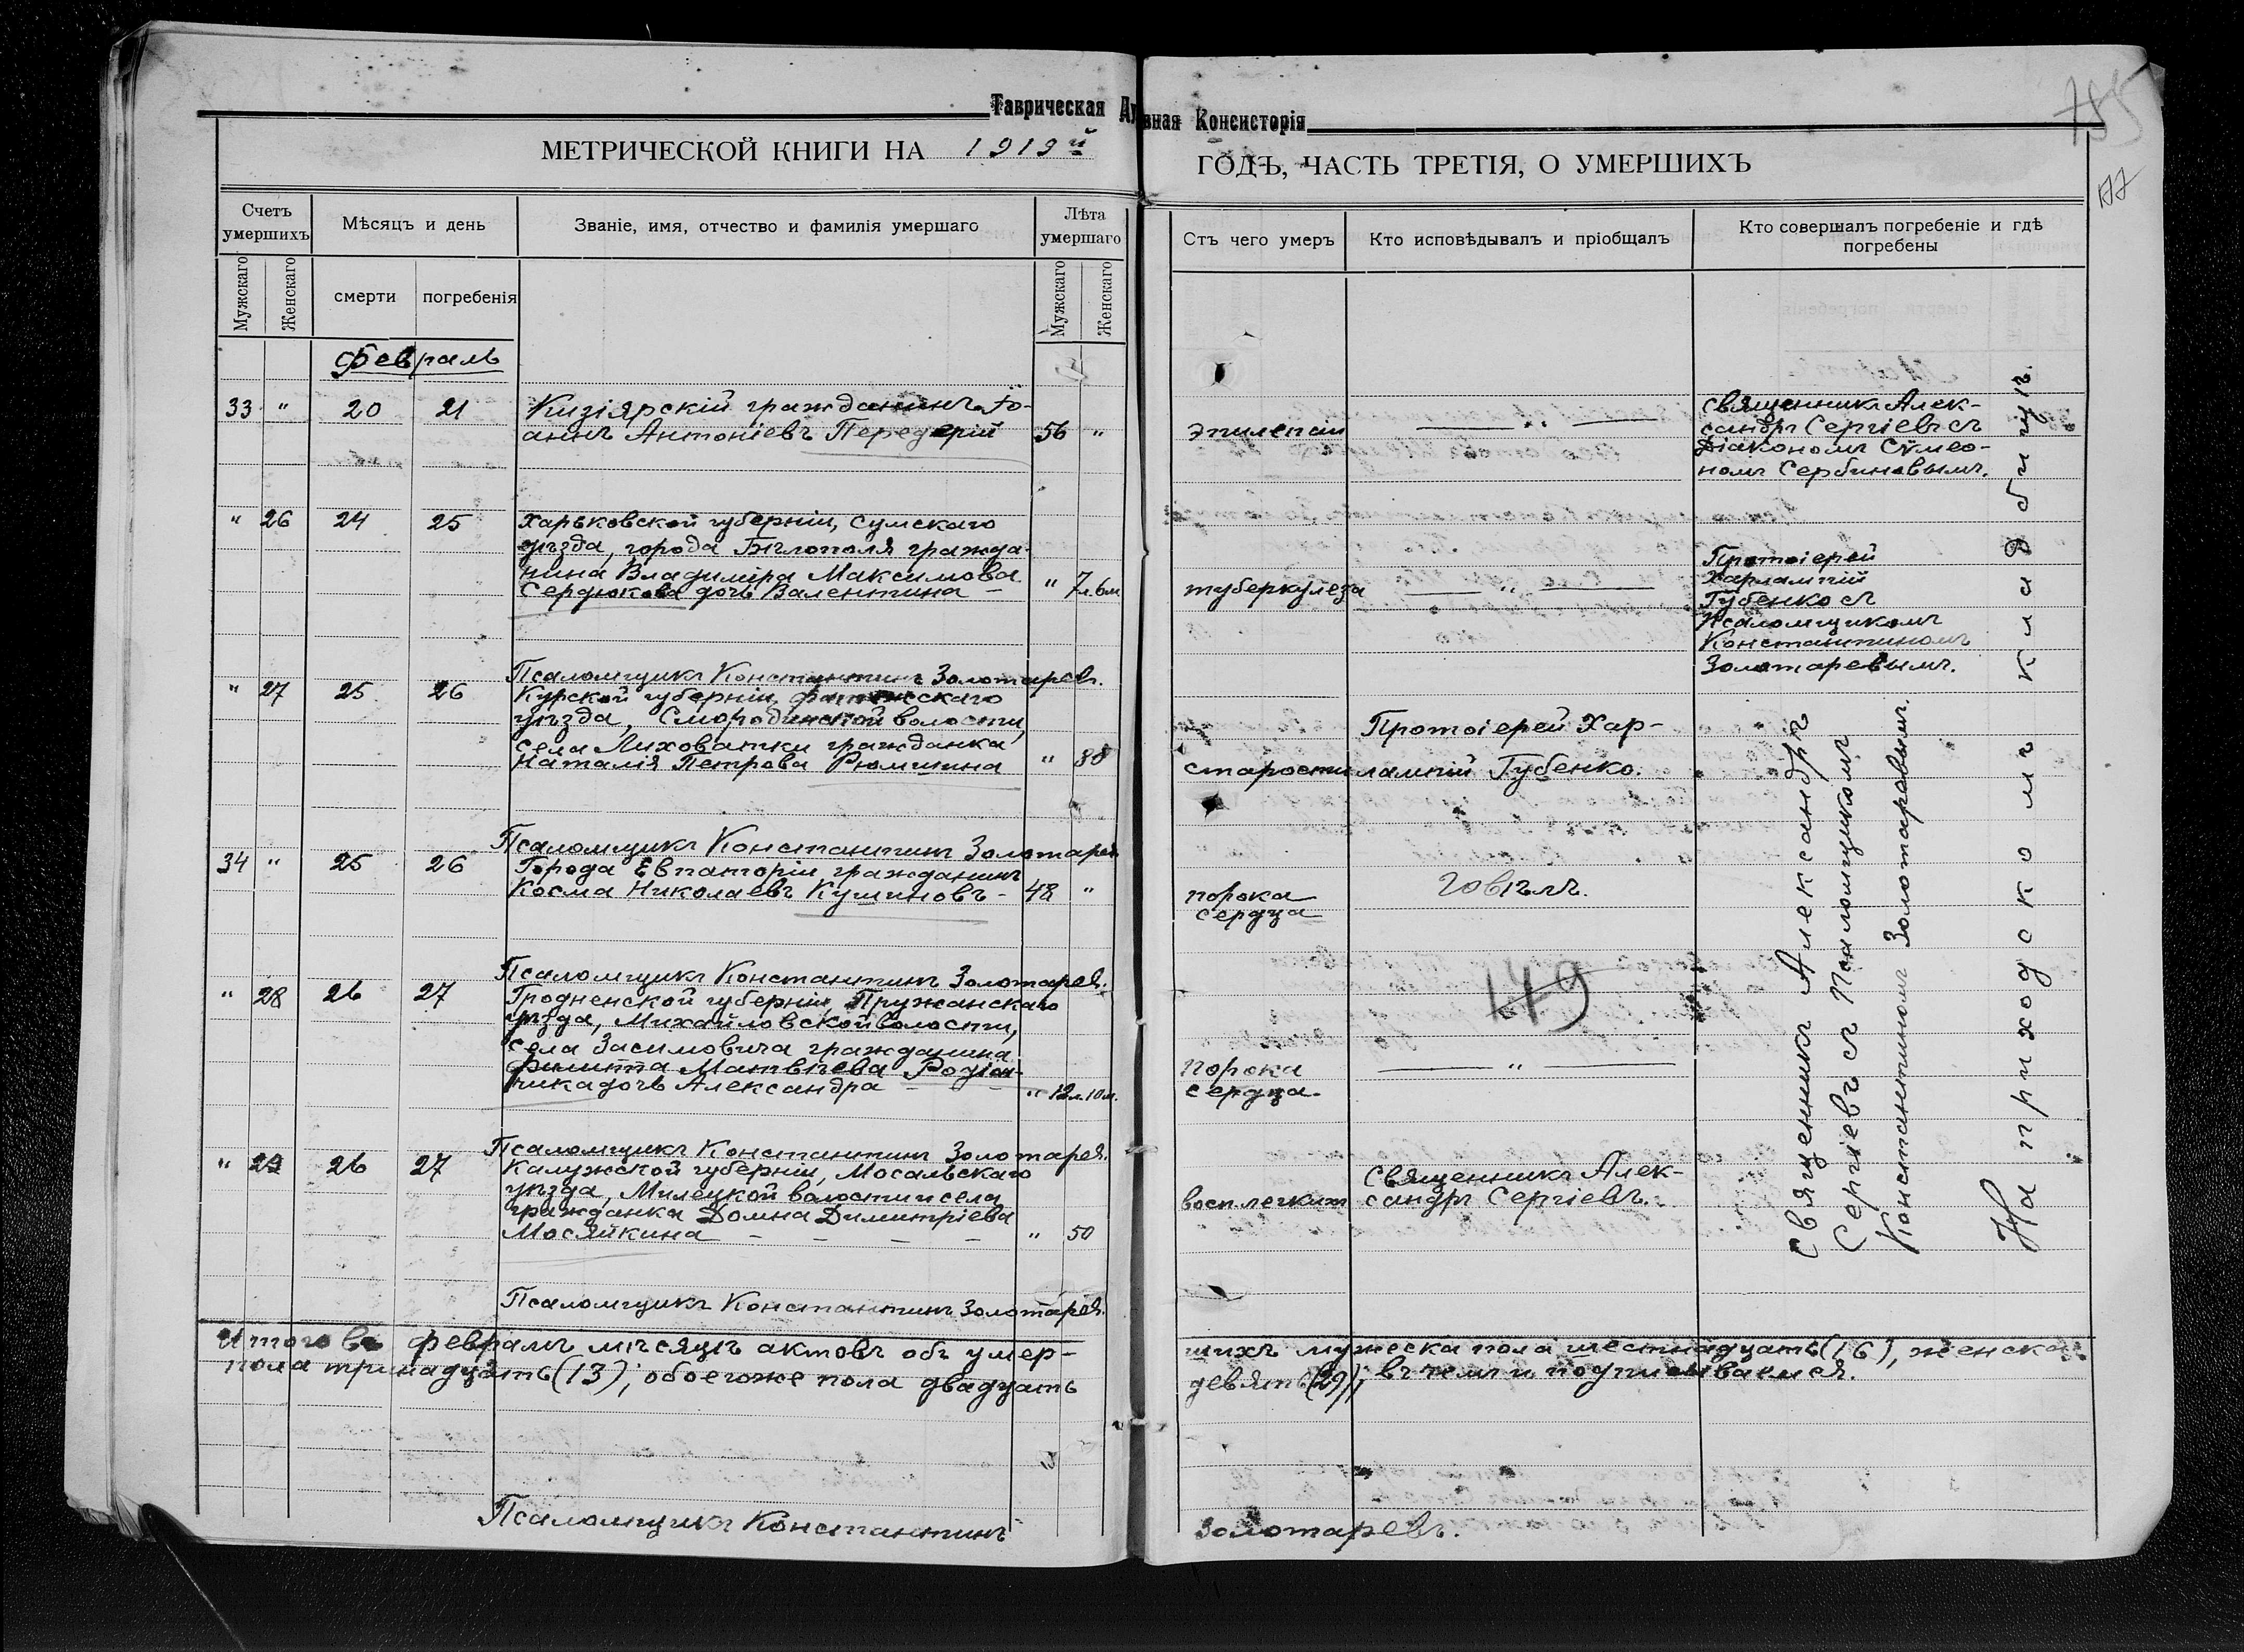 Таврическая Ду
вная Консисторія
785
177
МЕТРИЧЕСКОЙ КНИГИ НА 1919й
ГОДЪ, ЧАСТЬ ТРЕТІЯ, О УМЕРШИХЪ
Счетъ умершихъ
Мѣсяцъ и день
Званіе, имя, отчество и фамилія умершаго
Лѣта умершаго
Стъ чего умеръ
Кто исповѣдывалъ и пріобщалъ
Кто совершалъ погребеніе и гдѣ погребены
Мужскаго
Женскаго
смерти
погребенія
Мужскаго
Женскаго
Февраль
33 " 20 21
Кизіярскій гражданинъ Іо-
аннъ Антоніевъ Передерій 56 "
эпилепсіи
— " —
Священникъ Алек-
сандръ Сергіевъ съ
Діакономъ Сѵмео-
номъ Сербиновымъ.
" 26 24 25
Харьковской губерніи, Сумскаго
уѣзда, города Бѣлополя гражда-
нина Владиміра Максимова
Сердюкова дочь Валентина — " 7л.6м
туберкулеза
— " —
Протоіерей
Харлампій
Губенко съ
Псаломщикомъ
Константиномъ
Золотаревымъ.
Псаломщикъ Константинъ Золотаревъ.
" 27 25 26
Курской губерніи, Фатежскаго
уѣзда, Смородинской волости,
села Лиховатки гражданка
Наталія Петрова Рюмшина " 88
старости
Протоіерей Хар-
лампій Губенко.
Псаломщикъ Константинъ Золотарев
34 " 25 26
Города Евпаторіи гражданинъ
Косма Николаевъ Кушиновъ - 48 "
порока
сердца
говѣлъ.
Псаломщикъ Константинъ Золотарев.
" 28 26 27
Гродненской губерніи, Пружанскаго
уѣзда, Михайловской волости,
села Засимовича гражданина
Филиппа Матвѣева
ника дочь Александра — — " 12л.10м.
порока
сердца.
— " —
149
Псаломщикъ Константинъ Золотарев.
" 29 26 27
Калужской губерніи, Мосальскаго
уѣзда, Милецкой волости и села
гражданка Домна Димитріева
Мосяйкина — — — — " 50
восп. легкихъ
Священникъ Алек-
сандръ Сергіевъ.
Священникъ Александръ
Сергіевъ съ Псаломщикомъ
Константиномъ Золотаревымъ.
На приходскомъ кладбищѣ.
Псаломщикъ Константинъ Золотарев.
Итого въ февралѣ мѣсяцѣ актовъ объ умер-
шихъ мужеска пола шестнадцать (16), женска
пола тринадцать (13); обоегоже пола двадцать
девять (29); въ чемъ и подписываемся.
Псаломщикъ Константинъ
Золотаревъ.